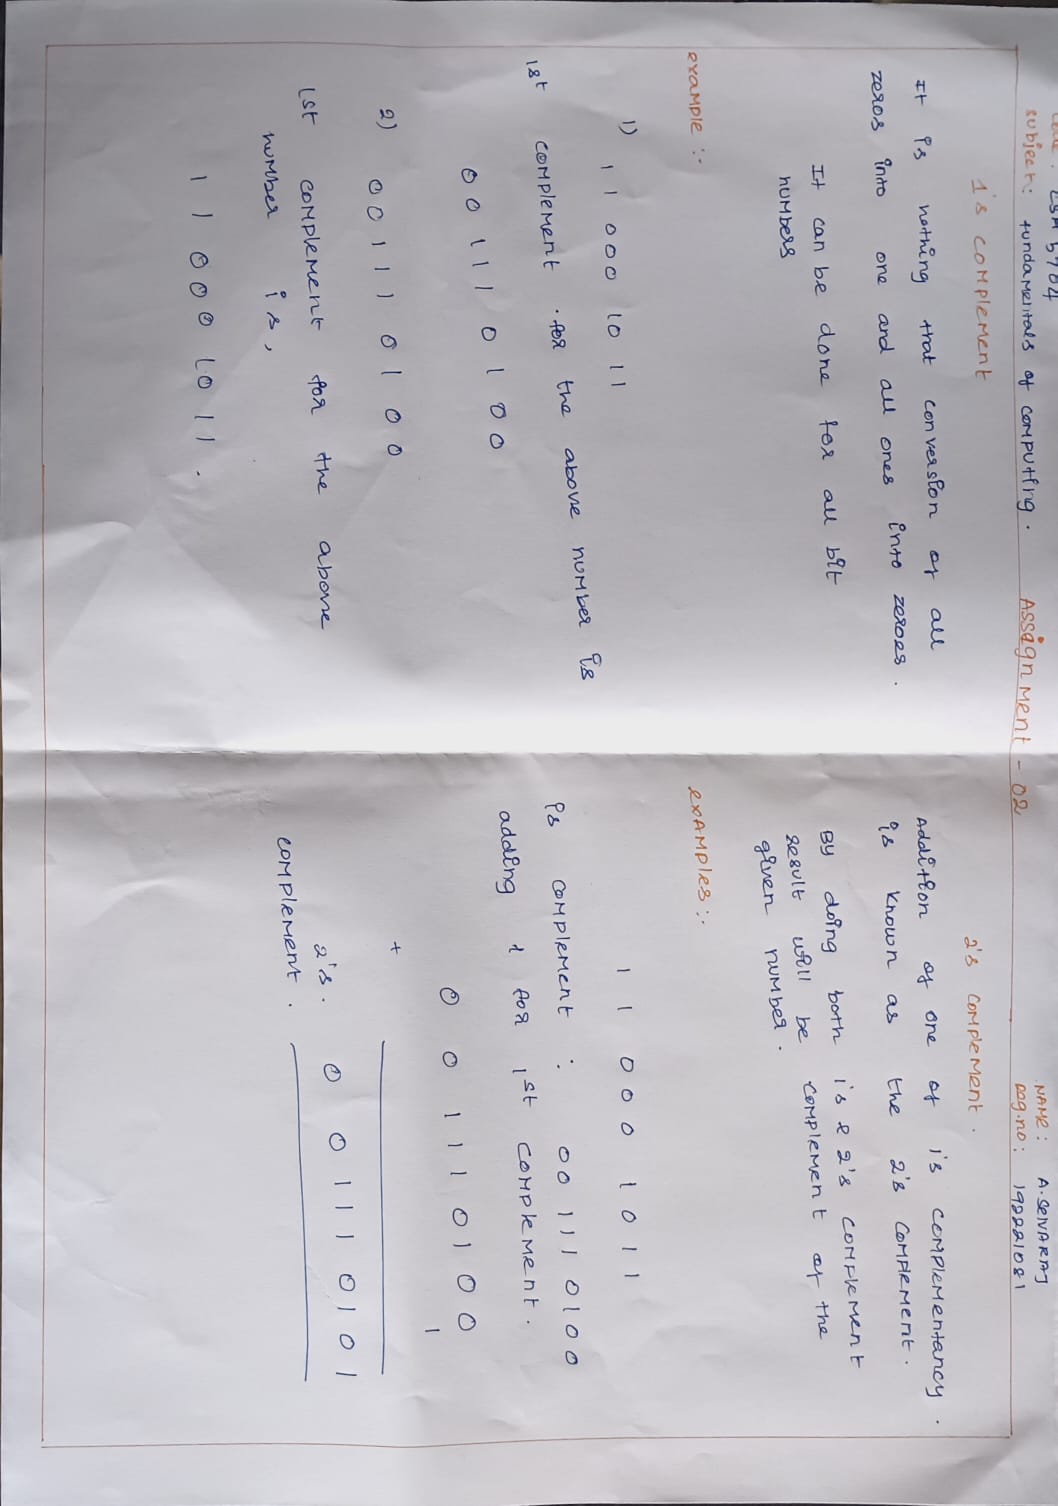 CSA 5704
subject: fundamentals of computing.
Assignment - 02
NAME: A. SELVARAJ
Reg.no: 192221081
1's complement
It is nothing that conversion of all
zeros into one and all ones into zeroes.
It can be done for all bit
numbers
example :-
1) 1 1 0 0 0 1 0 1 1
1st complement for the above number is
0 0 1 1 1 0 1 0 0
2) 0 0 1 1 1 0 1 0 0
1st complement for the above
number is,
1 1 0 0 0 1 0 1 1 .
2's complement .
Addition of one of 1's complementancy .
is known as the 2's complement.
By doing both 1's & 2's complement
result will be complement of the
given number.
examples :-
1 1 0 0 0 1 0 1 1
is complement : 0 0 1 1 1 0 1 0 0
adding 1 for 1st complement.
0 0 1 1 1 0 1 0 0
+ 1
2's. 0 0 1 1 1 0 1 0 1
complement .